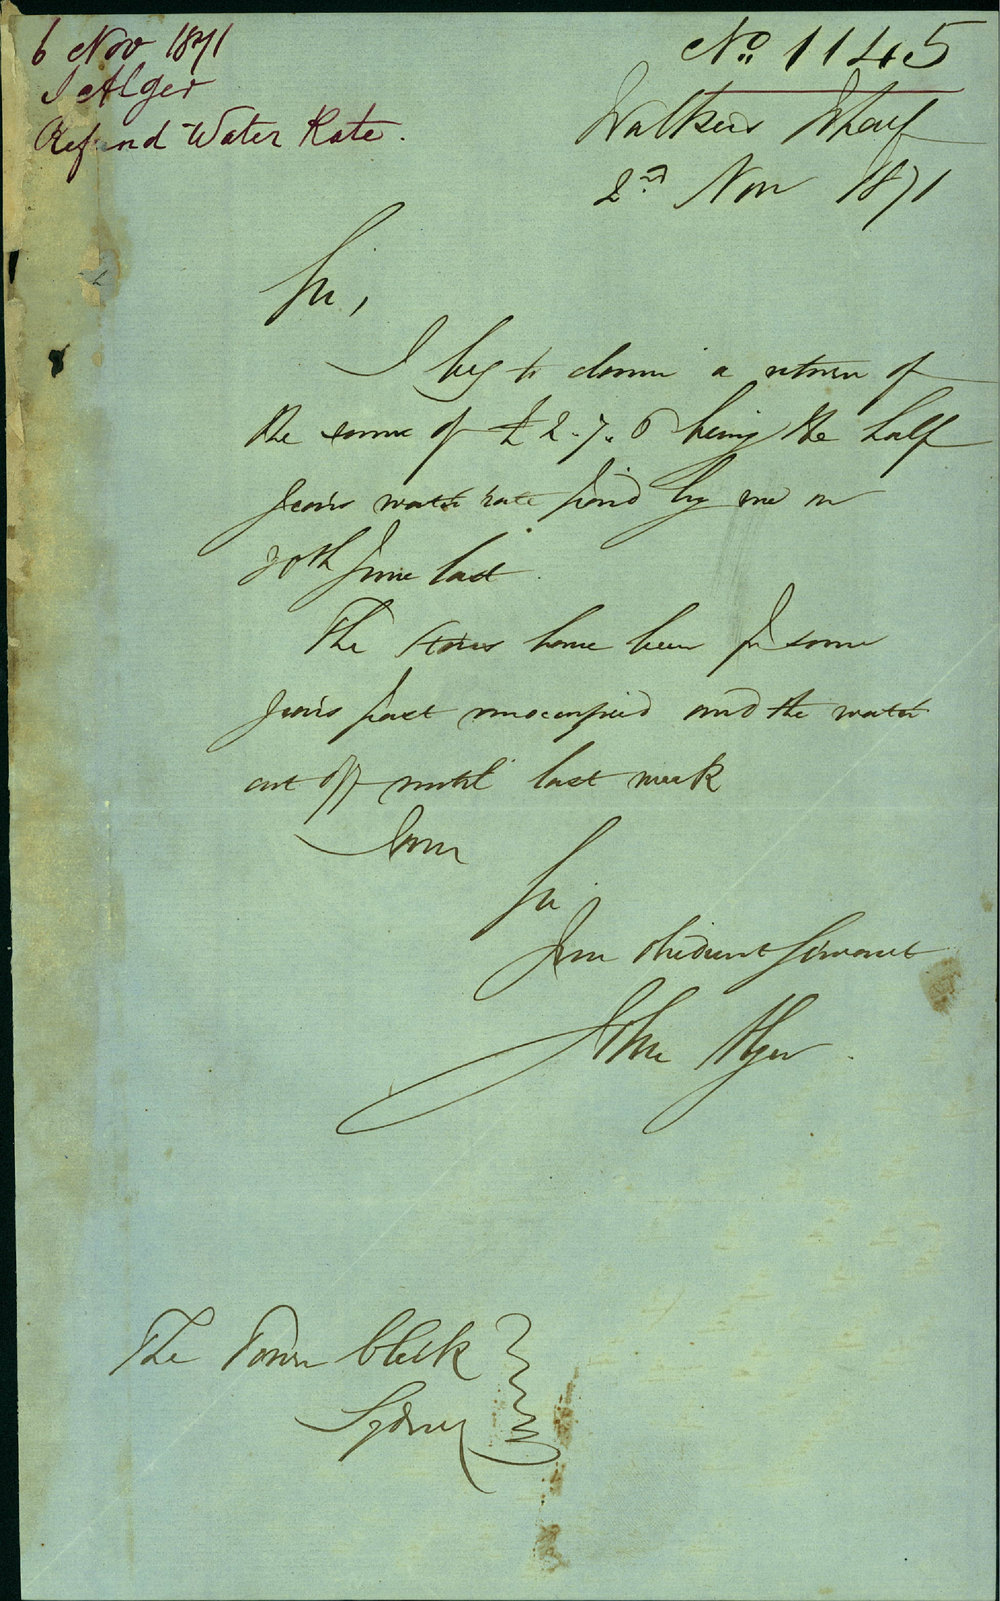 6 Nov 1871
J Alger
Refund Water Rate.
No. 1145
Walkers Wharf
2nd Nov 1871
Sir,
I beg to claim a return of
the sume of £2-7.6 being the half
years water rate paid by me on
30th June last.
The Stores have been for some
years past unoccupied and the water
cut off until last week
I am
Sir
Your obedient Servant
John Alger.
The Town Clerk
Sydney